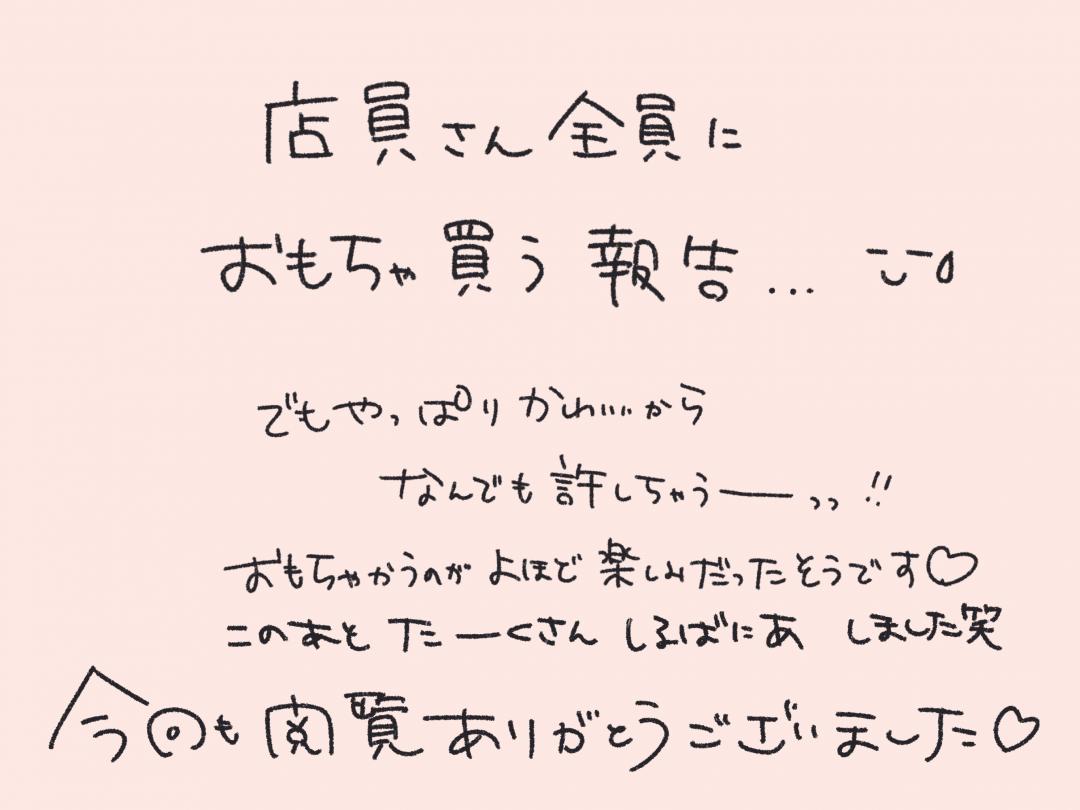 店員さん全員に
おもちゃ買う報告...
でもやっぱりかわいいから
なんでも許しちゃうーっっ!!
おもちゃかうのがよほど楽しみだったそうです♡
このあとたーくさんしるばにあしました笑
今回も閲覧ありがとうございました♡